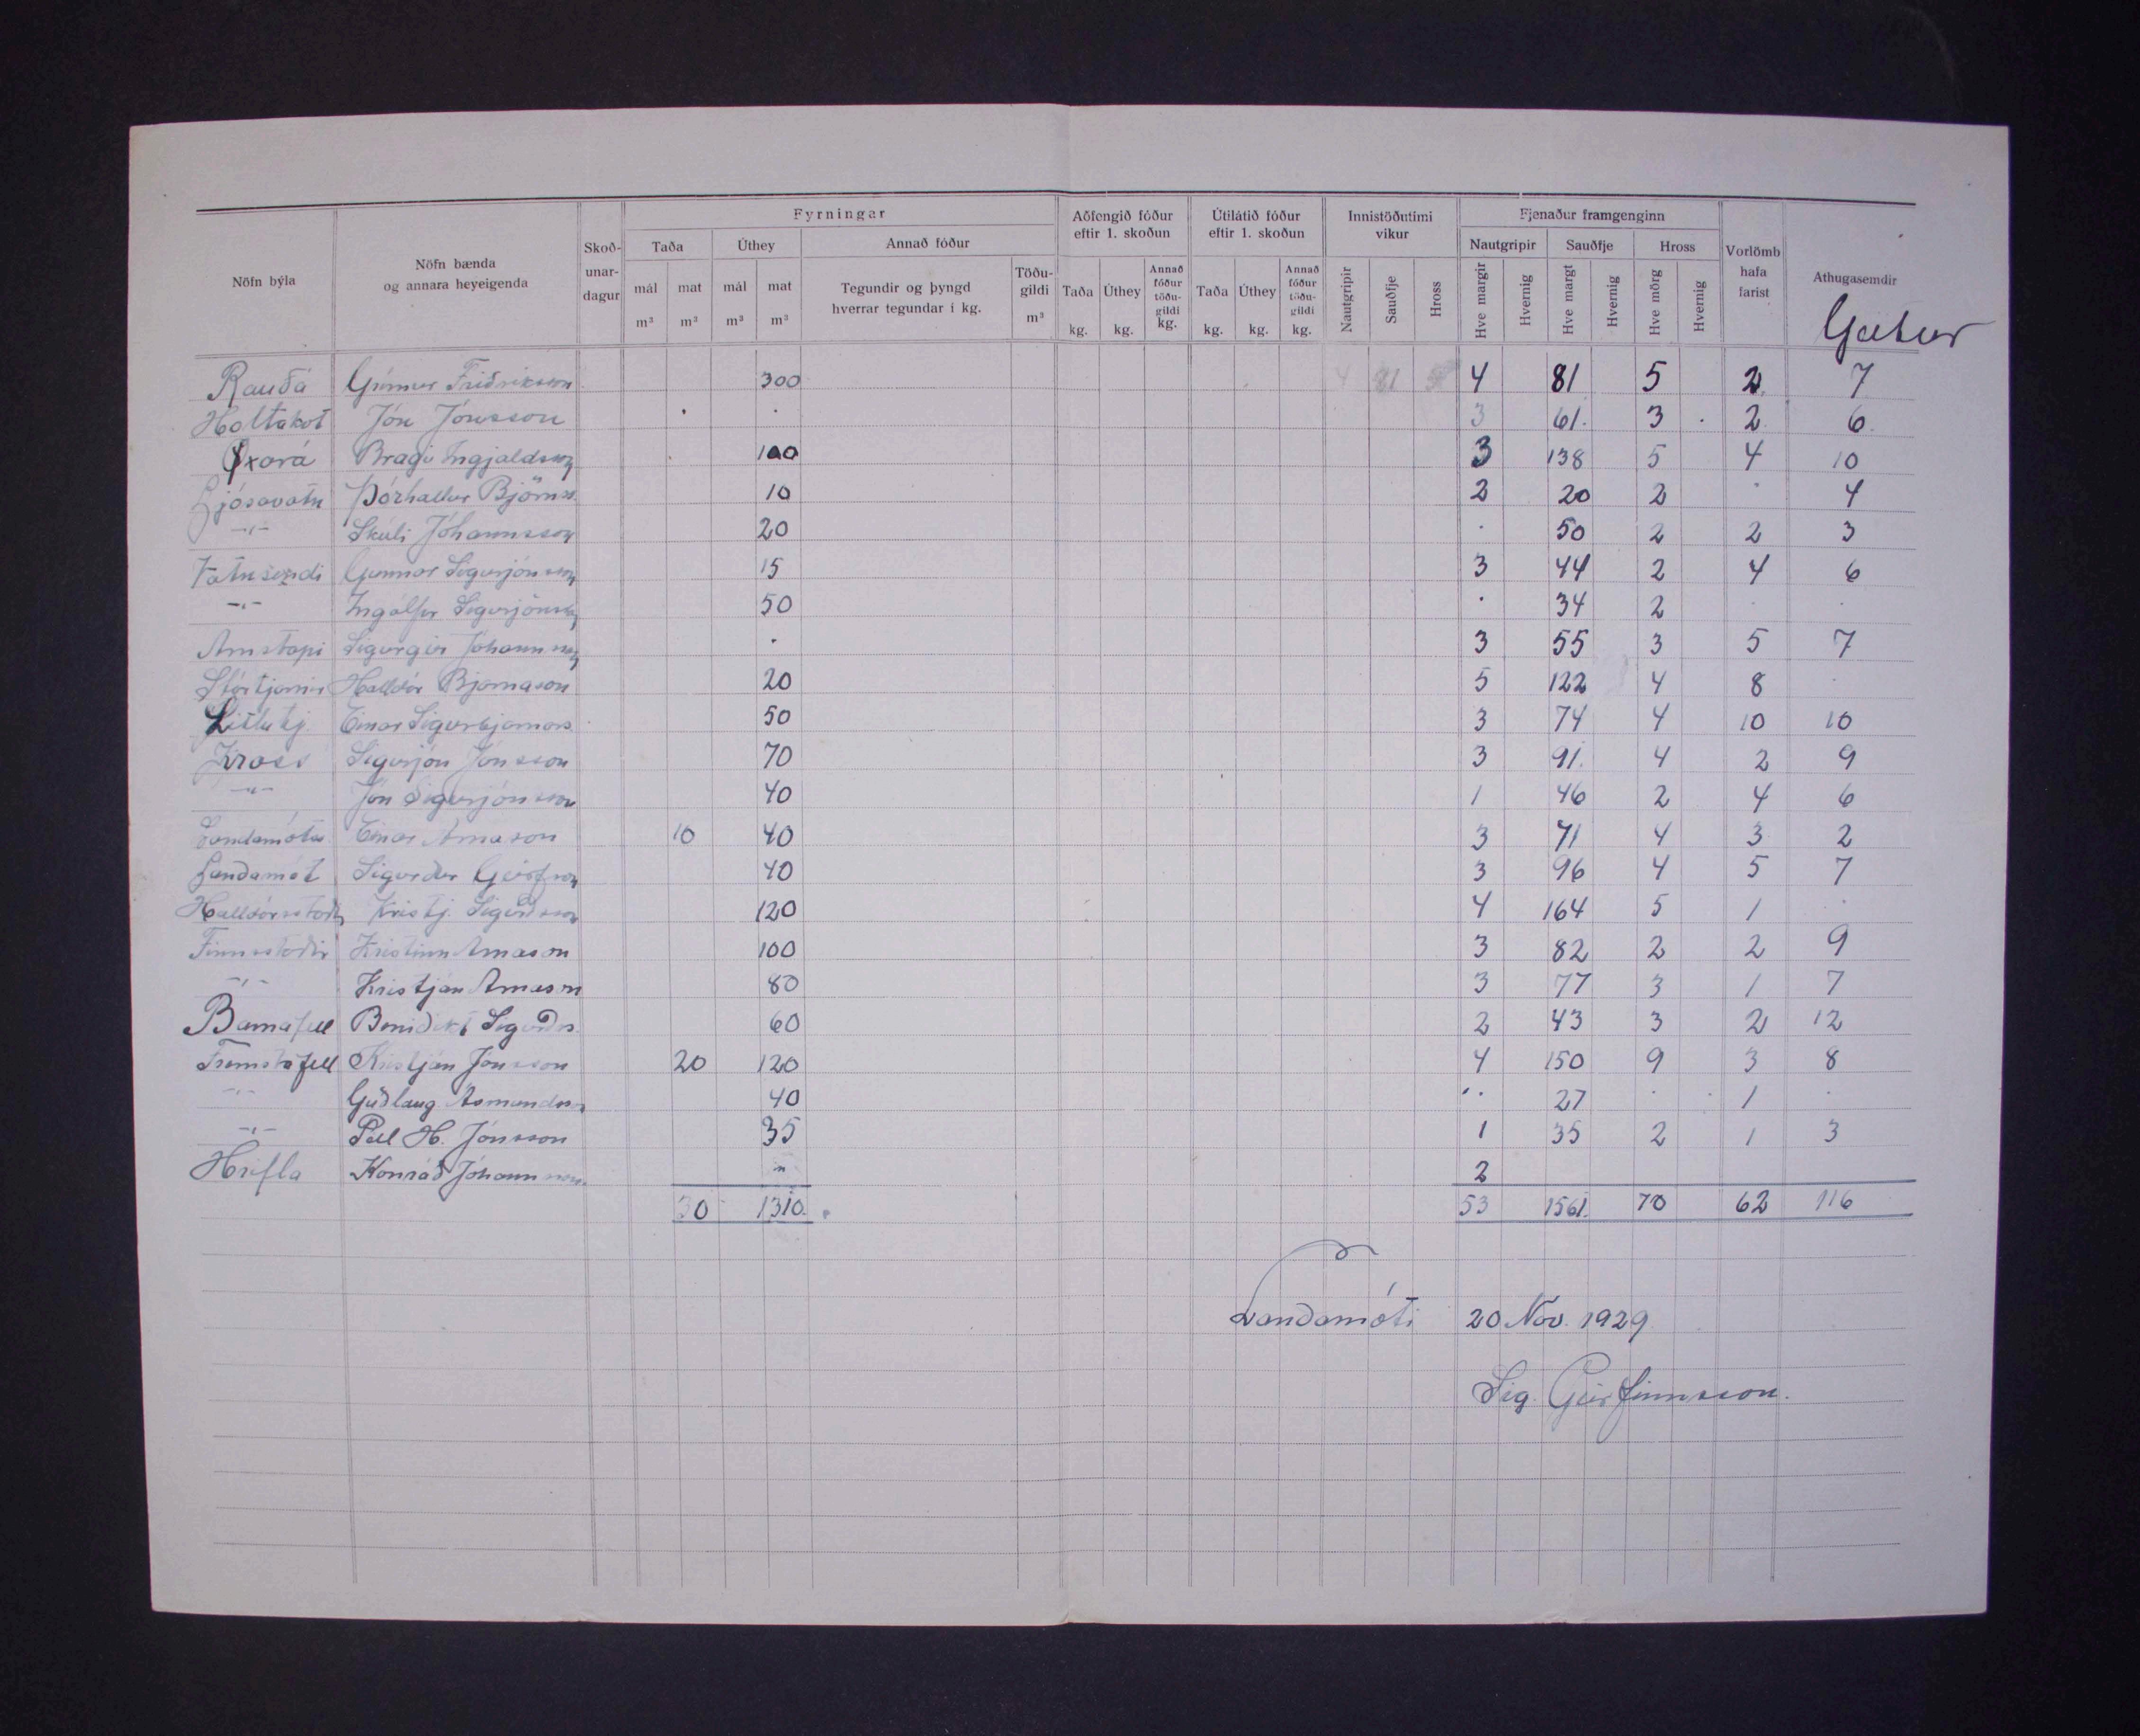 Fyrningar
Aðfengið fóður eftir 1. skoðun
Útilátið fóður eftir 1. skoðun
Innistöðutími vikur
Fjenaður framgenginn
Nöfn býla
Nöfn bænda og annara heyeigenda
Skoð-unar-dagur
Taða
Úthey
Annað fóður
Nautgripir
Sauðfje
Hross
Vorlömb hafa farist
Athugasemdir
mál m³
mat m³
mál m³
mat m³
Tegundir og þyngd hverrar tegundar í kg.
Töðu-gildi m³
Taða kg.
Úthey kg.
Annað fóður töðu-gildi kg.
Taða kg.
Úthey kg.
Annað fóður töðu-gildi kg.
Nautgripir
Sauðfje
Hross
Hve margir
Hvernig
Hve margt
Hvernig
Hve mörg
Hvernig
Geitur
Rauðá Grímur Friðriksson 300 4 81 5 4 81 5 2 7
Holtakot Jón Jónsson 3 61. 3 2 6
Öxará Bragi Ingjaldsson 100 3 138 5 4 10
Ljósavatn Þórhallur Björnss. 10 2 20 2 4
-"- Skúli Jóhannsson 20 50 2 2 3
Vatnsendi Gunnar Sigurjónsson 15 3 44 2 4 6
-"- Ingólfur Sigurjónsson 50 34 2
Arnstapi Sigurgeir Jóhannsson 3 55 3 5 7
Stórtjarnir Halldór Bjarnason 20 5 122 4 8
Litlutj. Einar Sigurbjarnars. 50 3 74 4 10 10
Kross Sigurjón Jónsson 70 3 91. 4 2 9
-"- Jón Sigurjónsson 40 1 46 2 4 6
Einar Árnason 10 40 3 71 4 3 2
Landamót Sigurður Geirfsson 40 3 96 4 5 7
Halldórsstaðir Kristj. Sigurðsson 120 4 164 5 1
Finnsstaðir Kristinn Árnason 100 3 82 2 2 9
-"- Kristján Árnason 80 3 77 3 1 7
Barnafell Benidikt Sigurðs. 60 2 43 3 2 12
Fremstafell Kristján Jónsson 20 120 4 150 9 3 8
-"- Guðlaug Ásmundsd. 40 27 1
-"- Páll H. Jónsson 35 1 35 2 1 3
Hrifla Konráð Jóhannsson. " 2
30 1310. 53 1561. 70 62 116
Landamóti 20 Nov. 1929
Sig. Geirfinnsson.